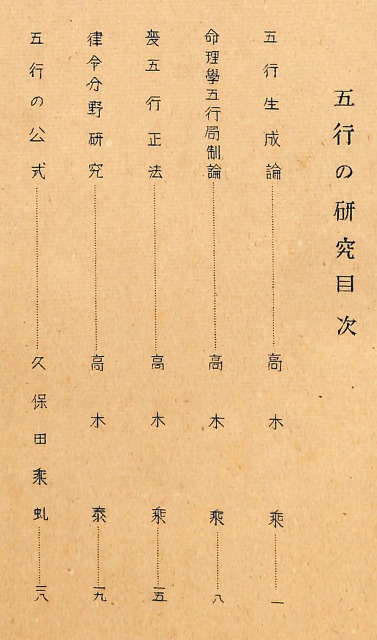 五行の研究目次
五行生成論……高木乘……一
命理學五行局制論……高木乘……八
五行正法……高木乘……一五
律令分野研究……高木泰……一九
五行の公式……久保田乘虬……二八